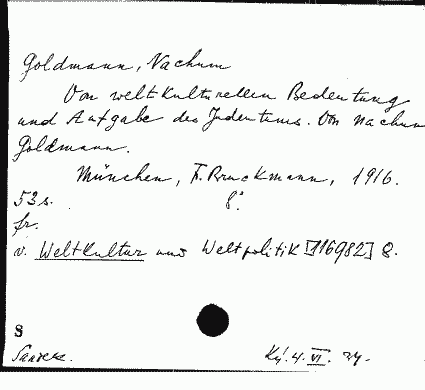 Goldmann, Nachum
Von weltkulturellen Bedeutung
und Aufgabe des Judentums. Von Nachum
Goldmann.
München, F. Bruckmann, 1916.
53 s. 8°
fr.
v. Weltkultur und Weltpolitik [116982] 8.
S
Ký. 4. VI. 24.